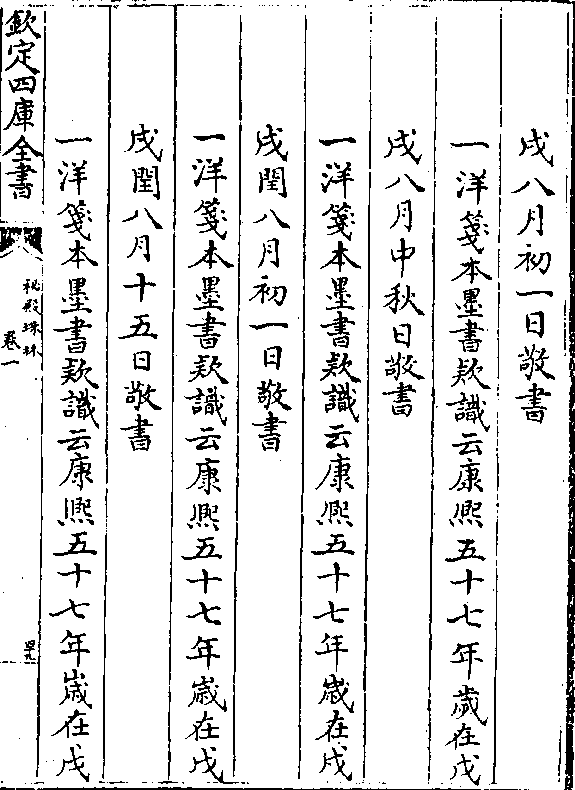 戌八月初一日敬書
一洋箋本墨書欵識云康熈五十七年歲在戊
戌八月中秋日敬書
一洋箋本墨書欵識云康熈五十七年歲在戊
戌閏八月初一日敬書
一洋箋本墨書欵識云康熈五十七年歲在戊
戌閏八月十五日敬書
一洋箋本墨書欵識云康熈五十七年歲在戊
欽定四庫全書
秘殿珠林
卷一